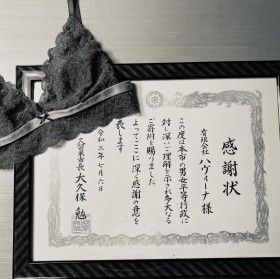 感謝状
有限会社 ハヴィーナ様
この度は本市の男女平等行政に
対し深いご理解を示され多大なる
ご寄附を賜りました
よってここに深く感謝の意を
表します
令和三年七月六日
久留米市長 大久保 勉